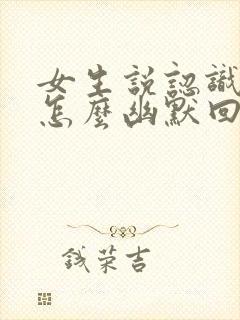 女生説認識
怎麼幽默回
錢荣吉